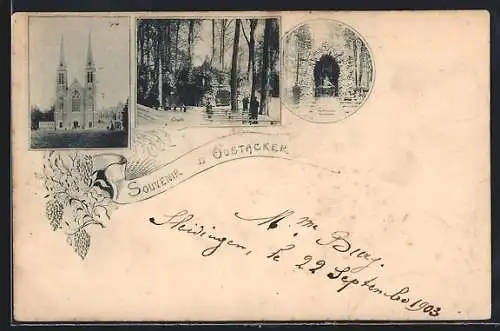 Souvenir D'Oostacker.
M. me Bracq.
Sleidingen, le 22 Septembre 1903